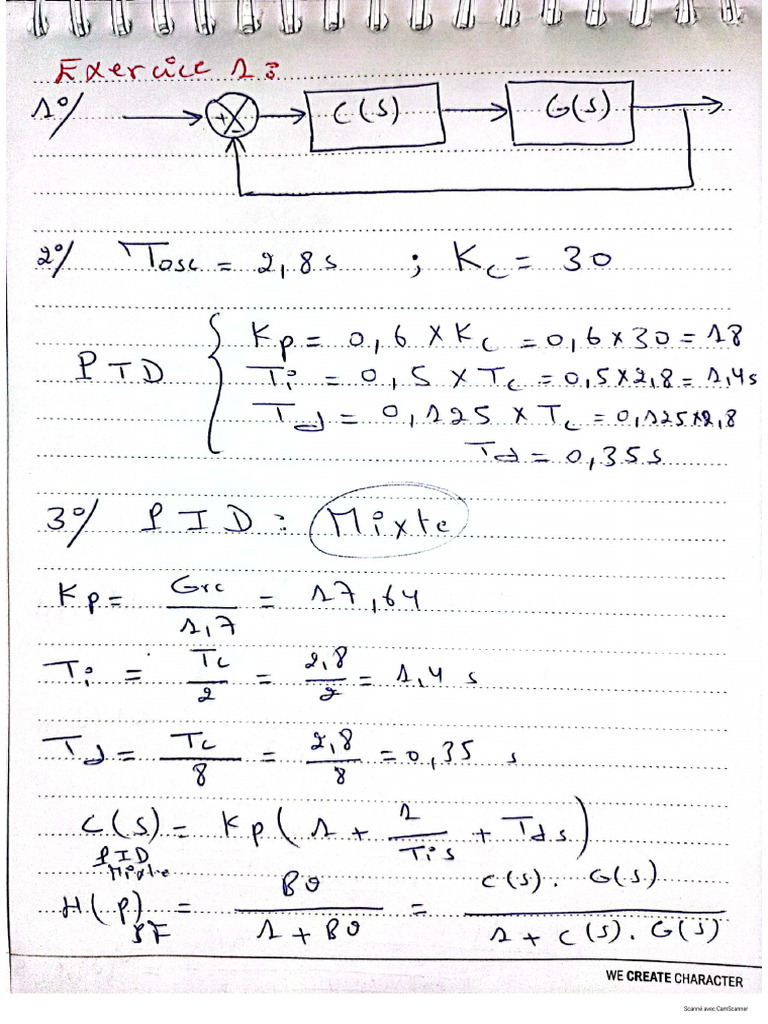 Exercice 1 :
1°/ + - C(S) G(S)
2°/ Tosc = 2,8 s ; Kc = 30
PID { Kp = 0,6 x Kc = 0,6 x 30 = 18
Ti = 0,5 x Tc = 0,5 x 2,8 = 1,4 s
Td = 0,125 x Tc = 0,125 x 2,8
Td = 0,35 s
3°/ PID : Mixte
Kp = Grc / 1,7 = 17,64
Ti = Tc / 2 = 2,8 / 2 = 1,4 s
Td = Tc / 8 = 2,8 / 8 = 0,35 s
C(S) PID Mixte = Kp ( 1 + 1 / Ti s + Td s )
H(p) BF = BO / 1 + BO = C(s) . G(s) / 1 + C(s) . G(s)
WE CREATE CHARACTER
Scanné avec CamScanner